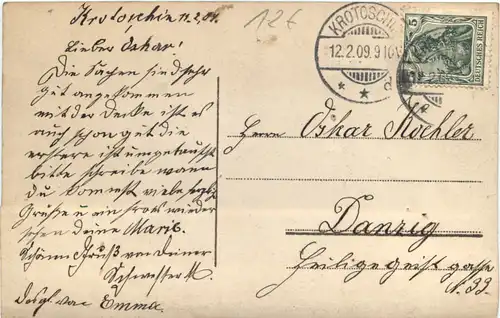 Krotoschin 11.2.09.
12 €
Lieber Oskar!
Die Sachen sind sehr
gut angekommen
mit der Decke ist es
auch schon gut die
erstere ist umgetauscht
bitte schreibe wann
du kommst viele herzl.
Grüße u ein frohes wieder
sehen deine Marie.
Schönen Gruß von deiner
Schwester M.
desgl von Emma.
KROTOSCHIN
12.2.09. 9-10V
* * d
5
DEUTSCHES REICH
Herrn Oskar Koehler
Danzig
Heiligegeistgasse
N. 33.